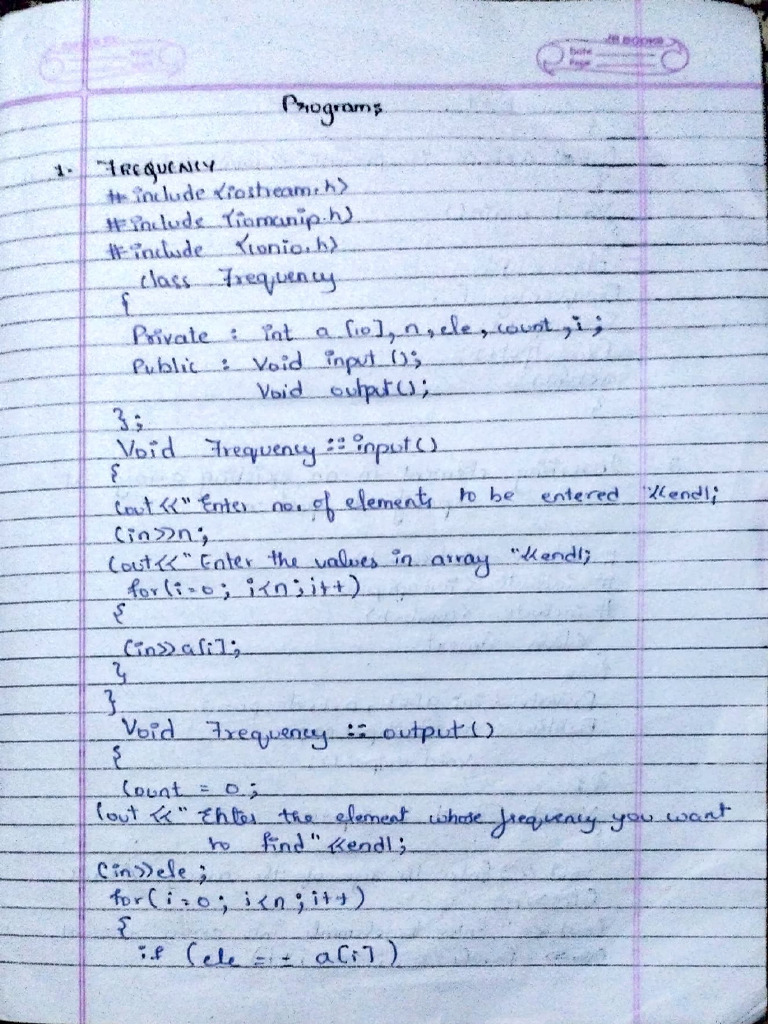 JB BOOKS
Date
Page
Programs
1. FREQUENCY
# include <iostream.h>
# include <iomanip.h>
# include <conio.h>
class Frequency
{
Private : int a [10], n, ele, count, i ;
Public : Void input ();
Void output();
};
Void Frequency :: input()
{
Cout << "Enter no. of elements to be entered "<<endl;
Cin>>n;
Cout<<" Enter the values in array "<<endl;
for (i=0; i<n; i++)
{
Cin>>a[i];
}
}
Void Frequency :: output()
{
Count = 0;
Cout << " Enter the element whose frequency you want
to find" <<endl;
Cin>>ele ;
for( i=0; i<n ; i++)
{
if (ele == a[i])